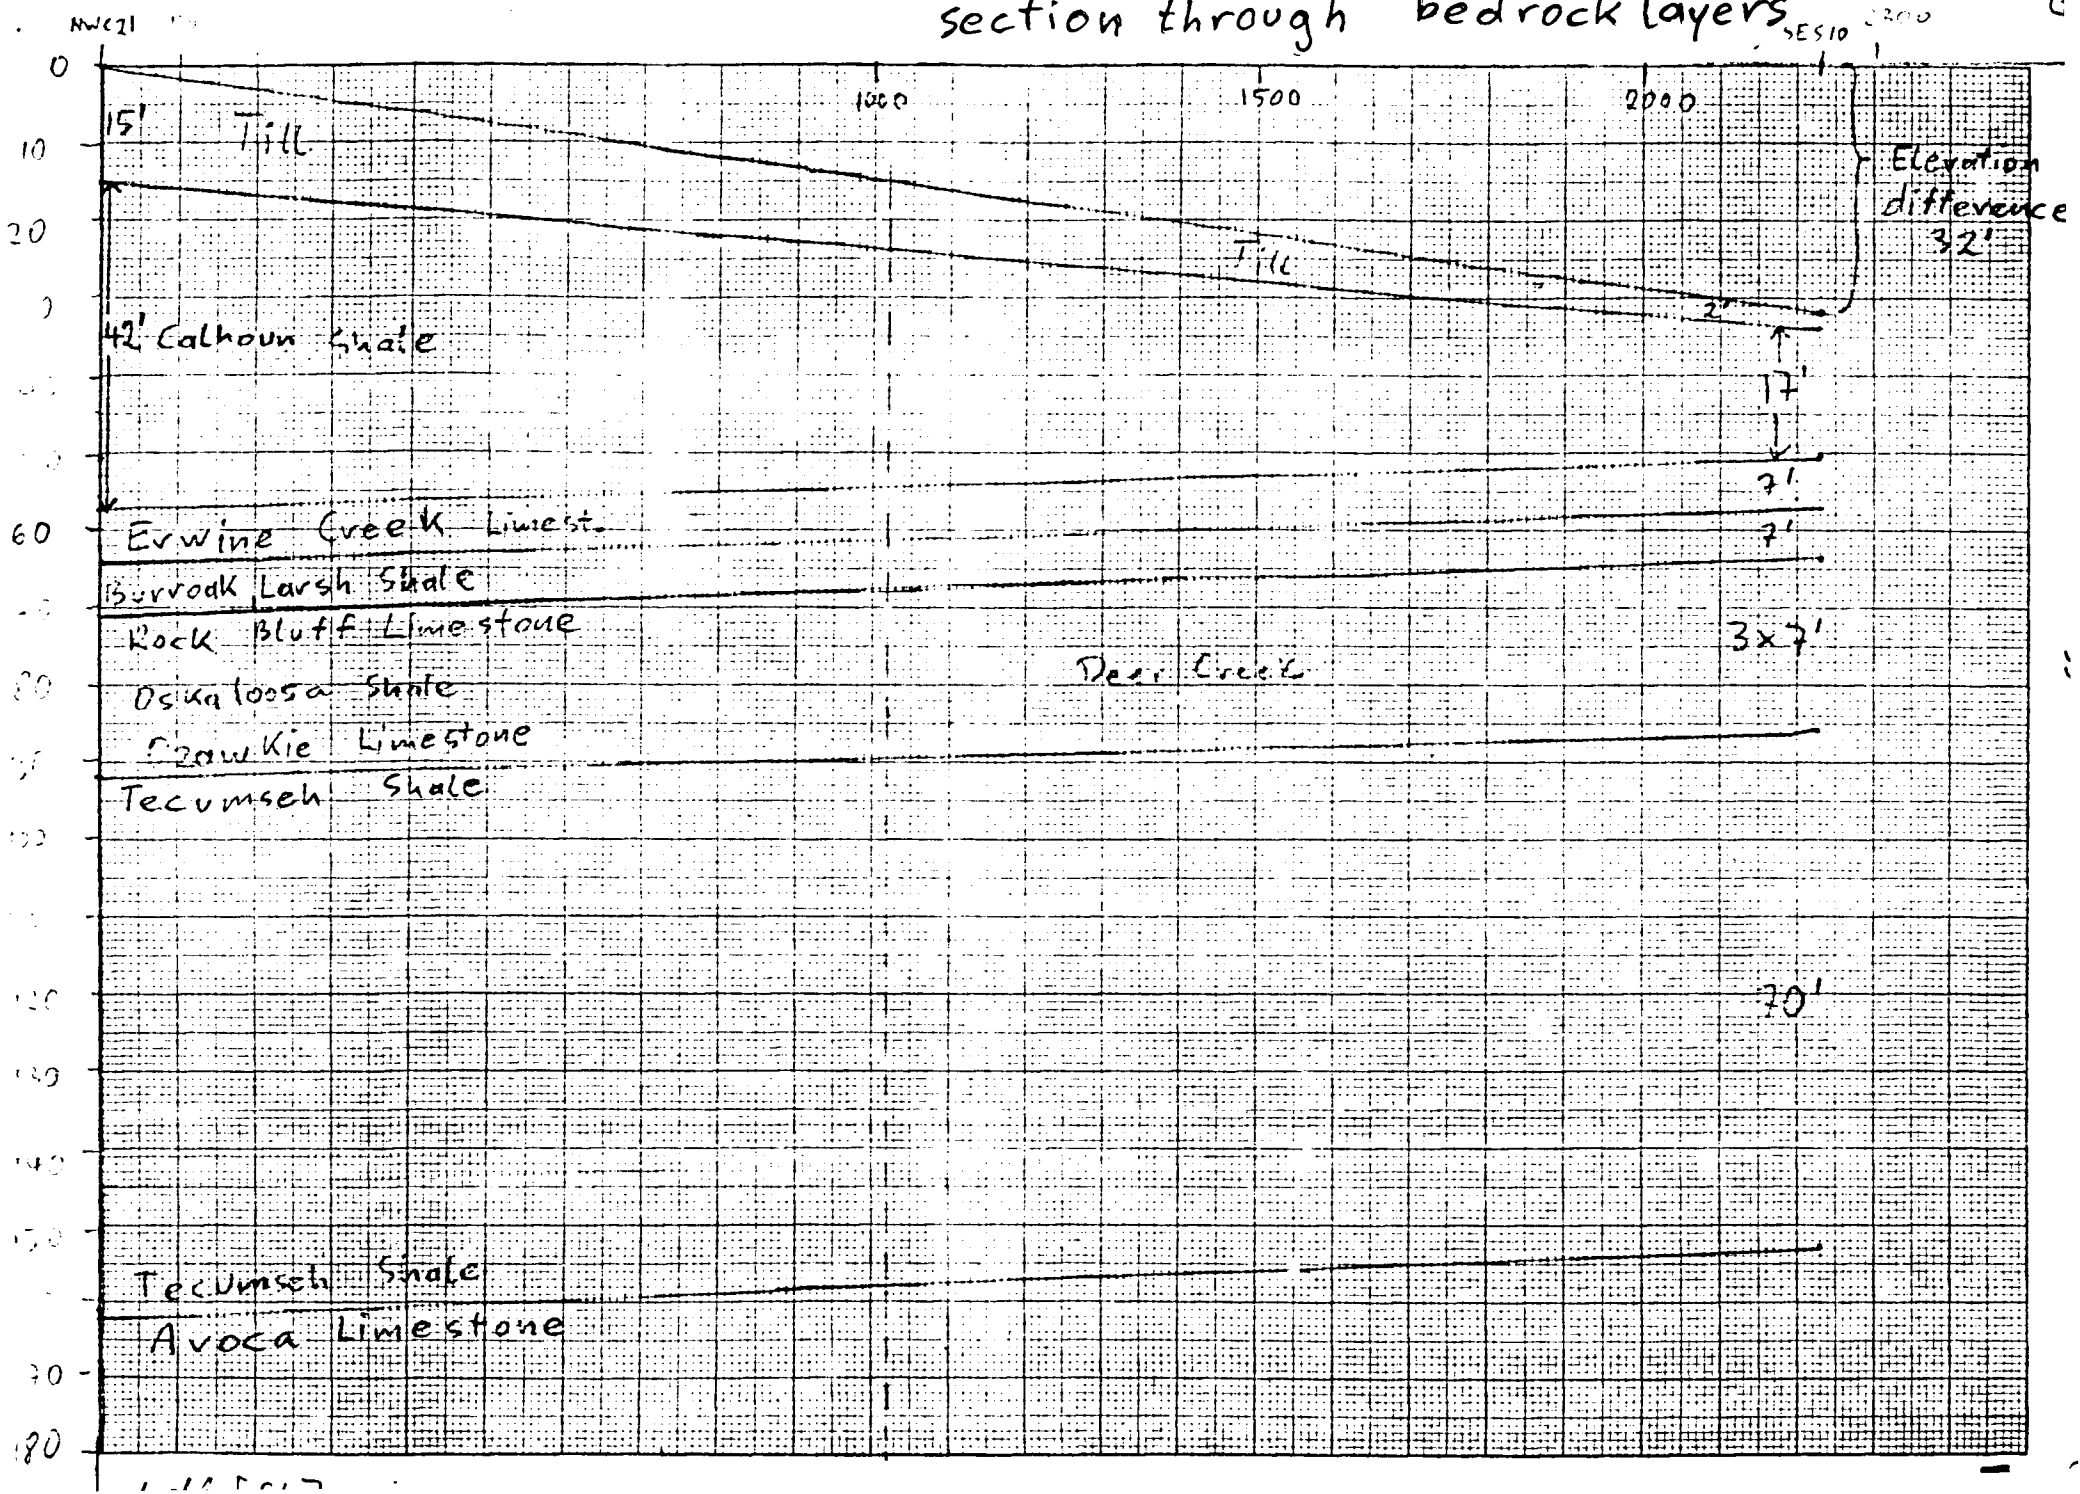 section through bedrock layers
NWC21
SES10
0
1000 1500 2000
15'
Till
10
Elevation
difference
32'
20
Till
2'
42' Calhoun Shale
17'
7'
60
Erwine Creek Limest.
7'
Burroak Larsh Shale
Rock Bluff Limestone
3x7'
Deer Creek
80
Oskaloosa Shale
Ozawkie Limestone
Tecumseh Shale
70'
Tecumseh Shale
Avoca Limestone
180